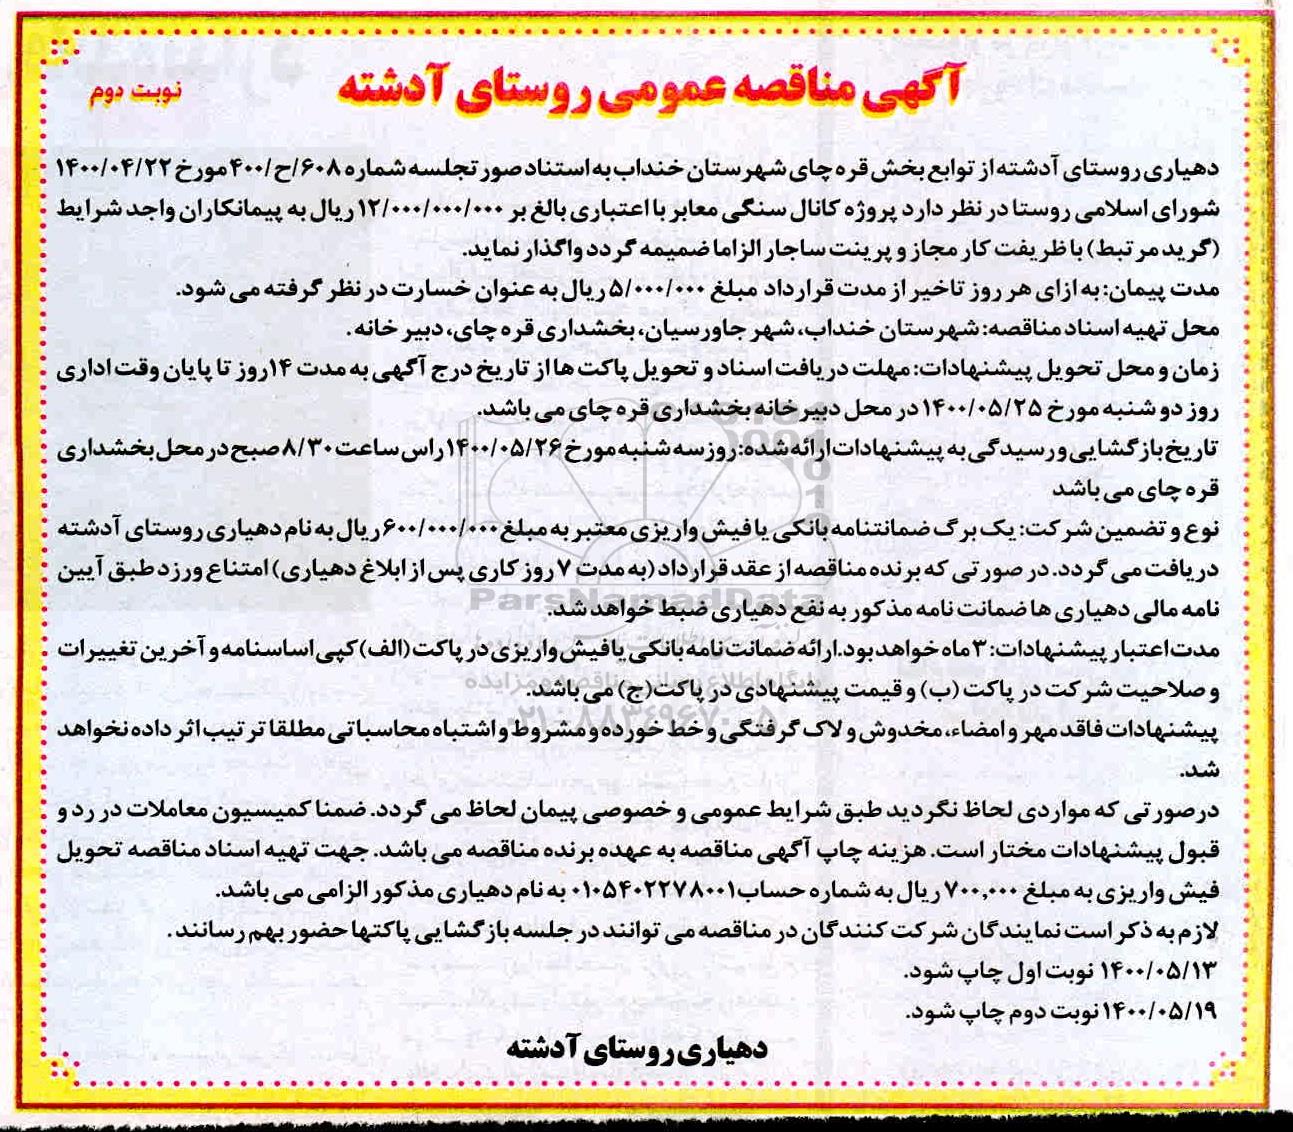 آگهی مناقصه عمومی روستای آدشته
نوبت دوم
دهیاری روستای آدشته از توابع بخش قره چای شهرستان خنداب به استناد صورتجلسه شماره ۶۰۸/ح/۴۰۰ مورخ ۱۴۰۰/۰۴/۲۲
شورای اسلامی روستا در نظر دارد پروژه کانال سنگی معابر با اعتباری بالغ بر ۱۲/۰۰۰/۰۰۰/۰۰۰ ریال به پیمانکاران واجد شرایط
(گرید مرتبط) با ظریفت کار مجاز و پرینت ساجار الزاما ضمیمه گردد واگذار نماید.
مدت پیمان: به ازای هر روز تاخیر از مدت قرارداد مبلغ ۵/۰۰۰/۰۰۰ ریال به عنوان خسارت در نظر گرفته می شود.
محل تهیه اسناد مناقصه: شهرستان خنداب، شهر جاورسیان، بخشداری قره چای، دبیر خانه.
زمان و محل تحویل پیشنهادات: مهلت دریافت اسناد و تحویل پاکت ها از تاریخ درج آگهی به مدت ۱۴روز تا پایان وقت اداری
روز دو شنبه مورخ ۱۴۰۰/۰۵/۲۵ در محل دبیر خانه بخشداری قره چای می باشد.
تاریخ بازگشایی و رسیدگی به پیشنهادات ارائه شده: روز سه شنبه مورخ ۱۴۰۰/۰۵/۲۶ راس ساعت ۸/۳۰ صبح در محل بخشداری
قره چای می باشد
نوع و تضمین شرکت: یک برگ ضمانتنامه بانکی یا فیش واریزی معتبر به مبلغ ۶۰۰/۰۰۰/۰۰۰ ریال به نام دهیاری روستای آدشته
دریافت می گردد. در صورتی که برنده مناقصه از عقد قرارداد (به مدت ۷ روز کاری پس از ابلاغ دهیاری) امتناع ورزد طبق آیین
نامه مالی دهیاری ها ضمانت نامه مذکور به نفع دهیاری ضبط خواهد شد.
ParsNamadData
مدت اعتبار پیشنهادات: ۳ ماه خواهد بود. ارائه ضمانت نامه بانکی یا فیش واریزی در پاکت (الف) کپی اساسنامه و آخرین تغییرات
و صلاحیت شرکت در پاکت (ب) و قیمت پیشنهادی در پاکت(ج) می باشد.
۰۲۱-۸۸۳۴۹۶۷۰-۵
پیشنهادات فاقد مهر و امضاء، مخدوش و لاک گرفتگی و خط خورده و مشروط و اشتباه محاسباتی مطلقا ترتیب اثر داده نخواهد
شد.
درصورتی که مواردی لحاظ نگردید طبق شرایط عمومی و خصوصی پیمان لحاظ می گردد. ضمنا کمیسیون معاملات در رد و
قبول پیشنهادات مختار است. هزینه چاپ آگهی مناقصه به عهده برنده مناقصه می باشد. جهت تهیه اسناد مناقصه تحویل
فیش واریزی به مبلغ ۷۰۰,۰۰۰ ریال به شماره حساب ۰۱۰۵۴۰۲۲۷۸۰۰۱ به نام دهیاری مذکور الزامی می باشد.
لازم به ذکر است نمایندگان شرکت کنندگان در مناقصه می توانند در جلسه بازگشایی پاکتها حضور بهم رسانند.
۱۴۰۰/۰۵/۱۳ نوبت اول چاپ شود.
۱۴۰۰/۰۵/۱۹ نوبت دوم چاپ شود.
دهیاری روستای آدشته